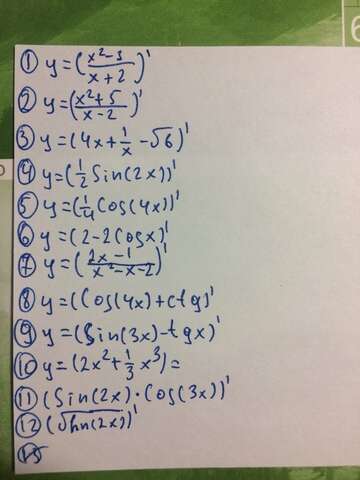 ① y=(x²-3/x+2)'
② y=(x²+5/x-2)'
③ y=(4x+1/x-√6)'
④ y=(1/2 Sin(2x))'
⑤ y=(1/4 Cos(4x))'
⑥ y=(2-2Cosx)'
⑦ y=(2x-1/x²-x-2)'
⑧ y=(Cos(4x)+ctg)'
⑨ y=(Sin(3x)-tgx)'
⑩ y=(2x²+1/3x³)=
⑪ (Sin(2x)·Cos(3x))'
⑫ (√hn(2x))'